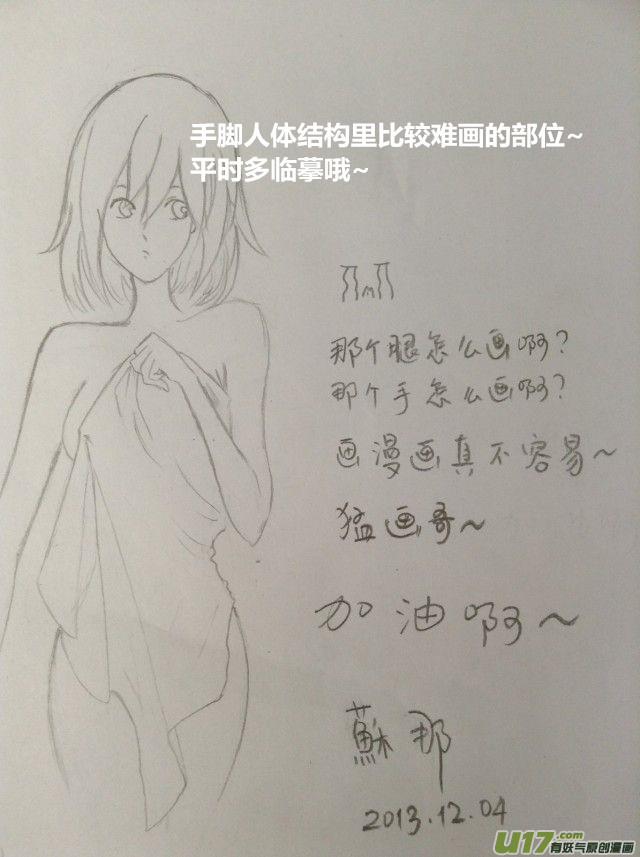 手脚人体结构里比较难画的部位~
平时多临摹哦~
那个腿怎么画啊？
那个手怎么画啊？
画漫画真不容易～
猛画哥～
加油啊～
蘇那
2013.12.04
U17.com
有妖气原创漫画